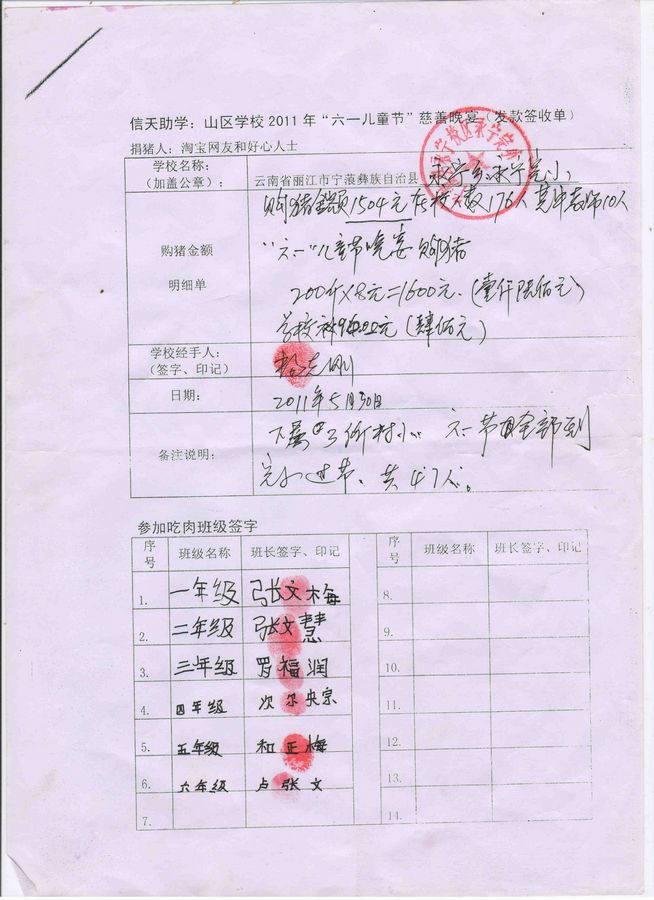 信天助学：山区学校2011年“六一儿童节”慈善晚宴（发款签收单）
捐猪人：淘宝网友和好心人士
学校名称：
（加盖公章）：
云南省丽江市宁蒗彝族自治县永宁乡永宁完小
购猪金额
明细单
购猪金额1504元 在校人数176人 其中教师10人
“六一”儿童节晚宴购猪
200斤×8元=1600元.（壹仟陆佰元）
学校补 元（肆佰元）
学校经手人：
（签字、印记）
日期：
2011年5月30日
备注说明：
下属 三个村小 六一节日全部到
完小过节、共47人。
参加吃肉班级签字
序号 班级名称 班长签字、印记 序号 班级名称 班长签字、印记
1. 一年级 张文梅 8.
2. 二年级 张文慧 9.
3. 三年级 罗福润 10.
4. 四年级 次尔央宗 11.
5. 五年级 和正梅 12.
6. 六年级 卢张文 13.
7. 14.